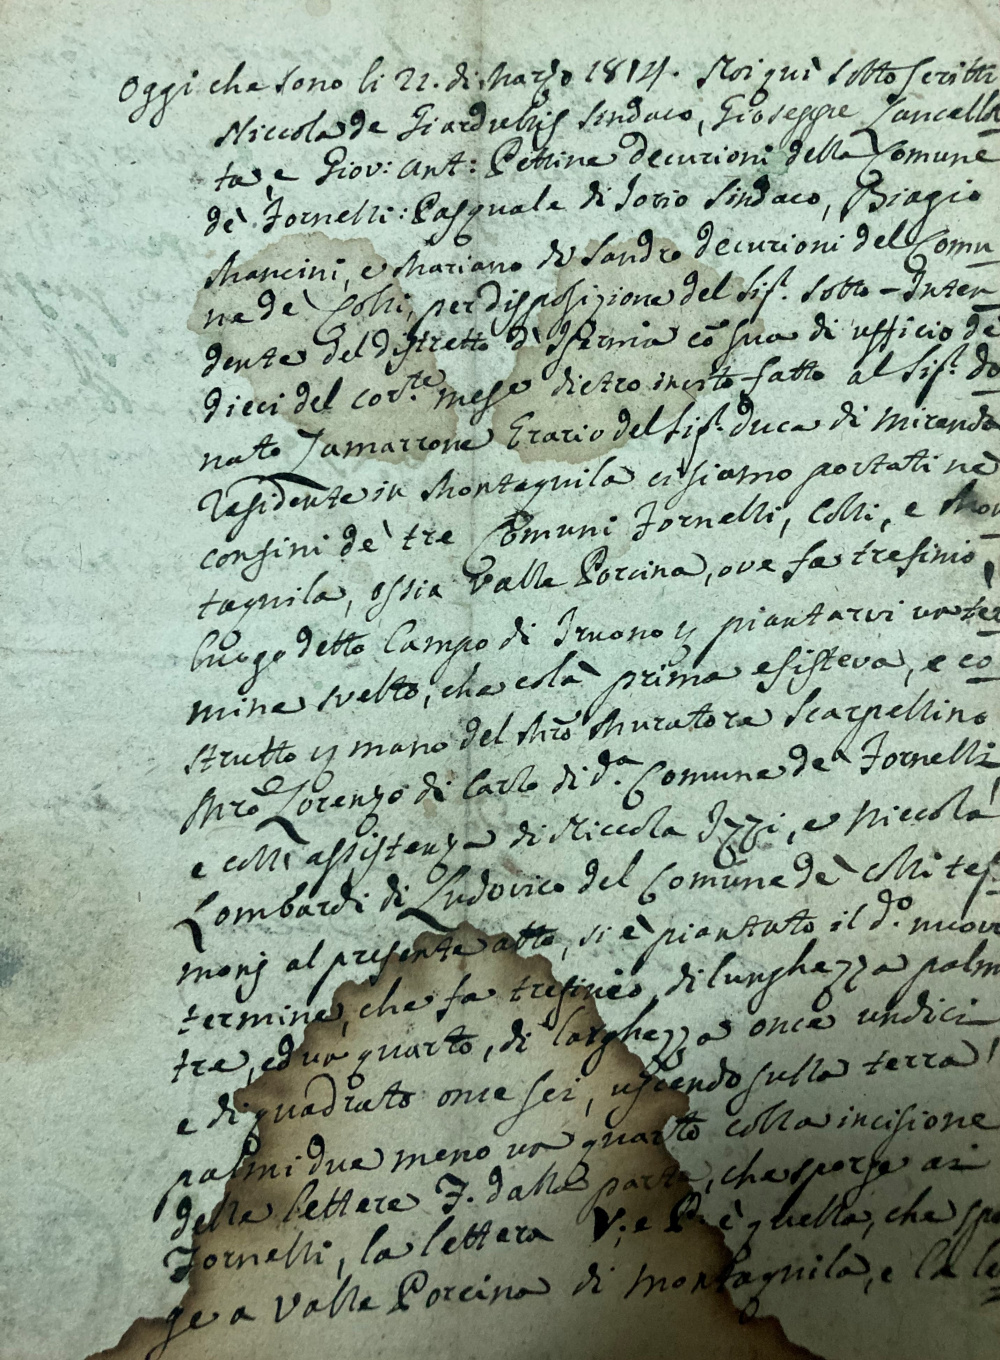 Oggi che sono li 22. di Marzo 1814. Noi quì sotto scritti
Niccola de Giardullis Sindaco, Gioseppe Lancellot
ta, e Giov: Ant: Pettine decurioni della Comune
de' Fornelli: Pasquale di Iorio Sindaco, Biagio
Mancini, e Mariano di Sandro decurioni del Comu
ne de' Colli, per disposizione del Sig.r Sotto-Inten
dente del distretto d'Isernia cō sua di ufficio de'
dieci del cor.te mese dietro invito fatto al Sig.r Do
nato Iamarrone Erario del Sig.r Duca di Miranda
residente in Montaquila ci siamo portati ne'
confini de' tre Comuni Fornelli, Colli, e Mon
taquila, ossia Valle Porcina, ove fa trefinio,
luogo detto Campo di Iruono p piantarvi un ter
mine svelto, che colà prima esisteva, e co
strutto p mano del Mrō Muratore Scarpellino
Mrō Lorenzo di Carlo di d.a Comune de' Fornelli,
e coll' assistenza di Niccola Izzi, e Niccola
Lombardi di Ludovico del Comune de' Colli tes
monj al presente atto, si è piantato il d.o nuovo
termine, che fa trefinio, di lunghezza palm
tre, ed un quarto, di larghezza once undici
e di quadrato once sei, uscendo sulla terra
palmi due meno un quarto colla incisione
delle lettere F. dalla parte, che sporge a
Fornelli, la lettera V. e P. è quella, che spo
ge a Valle Porcina di Montaquila, e la le